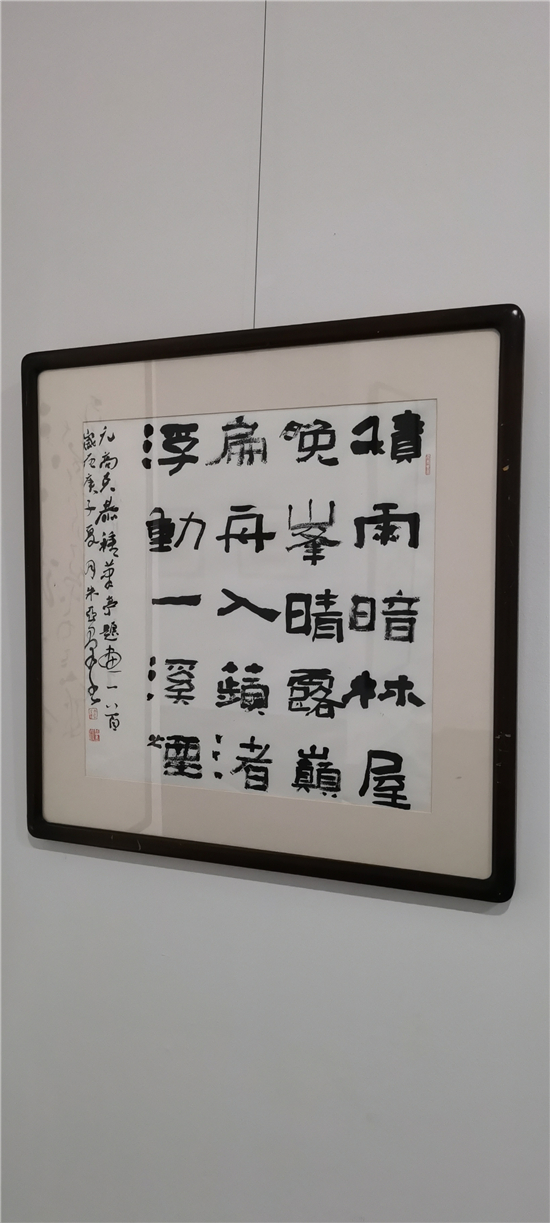 積雨暗林屋
晚峯晴露巔
扁舟入蘋渚
浮動一溪煙
元高克恭題畫一首
歲在庚子夏月朱亞